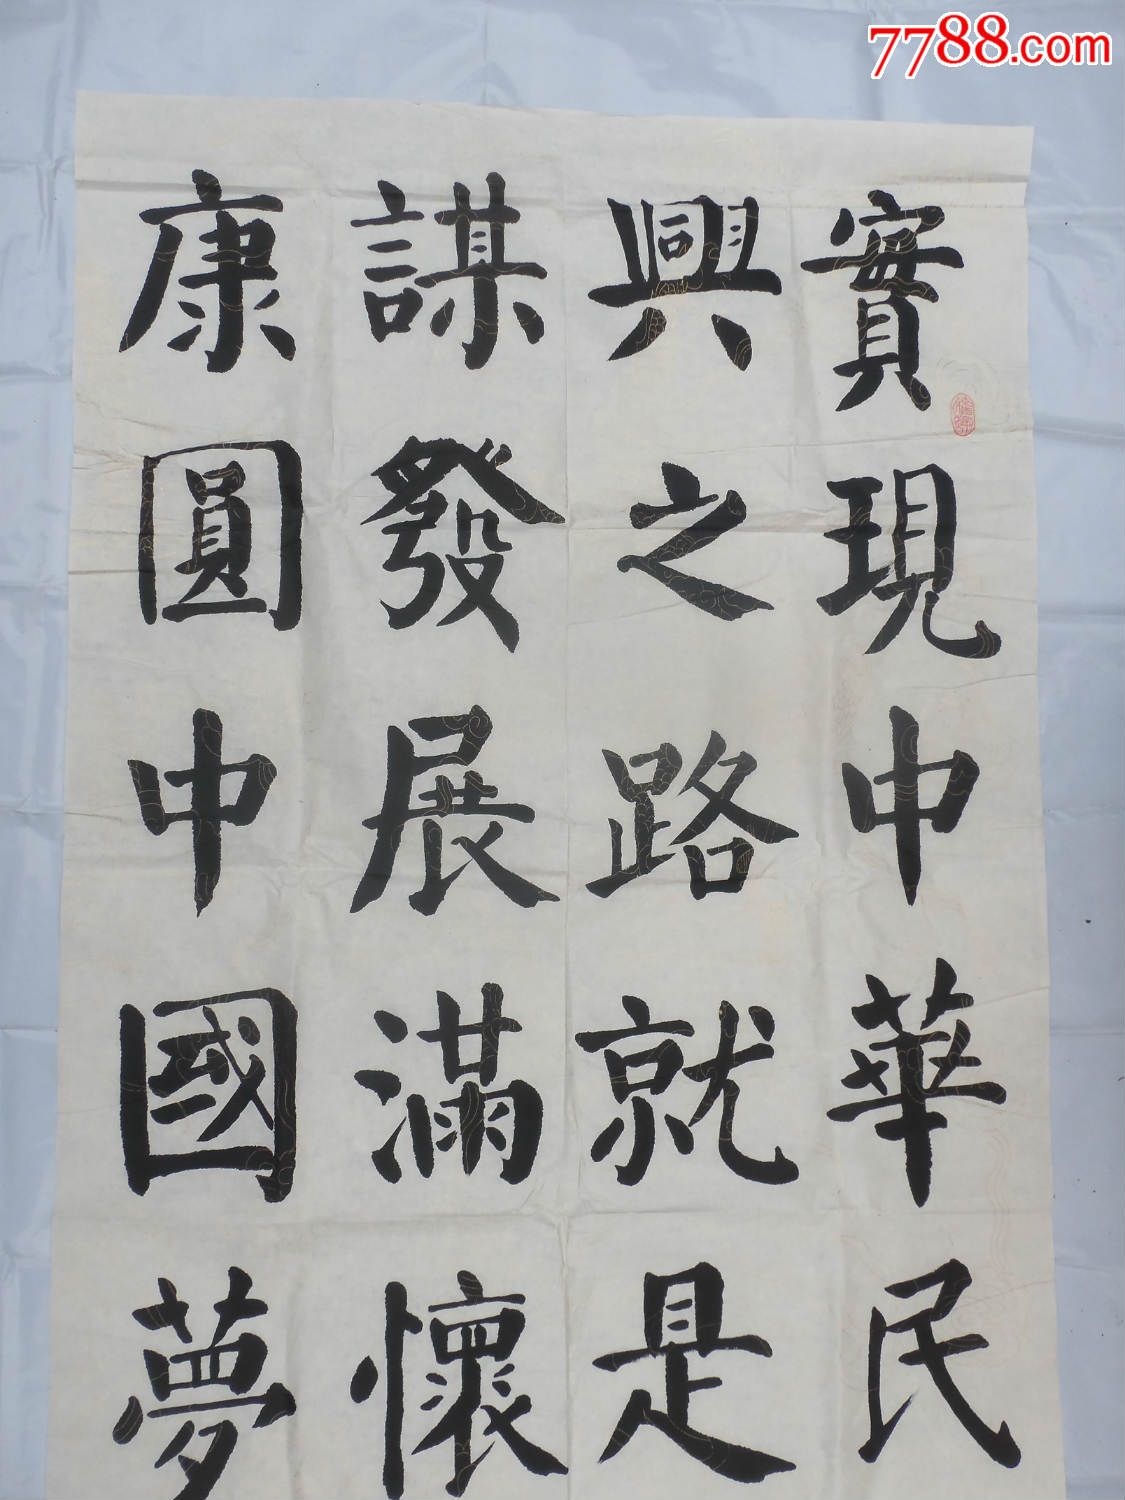 7788.com
實現中華民
興之路就是
謀發展滿懷
康圓中國夢